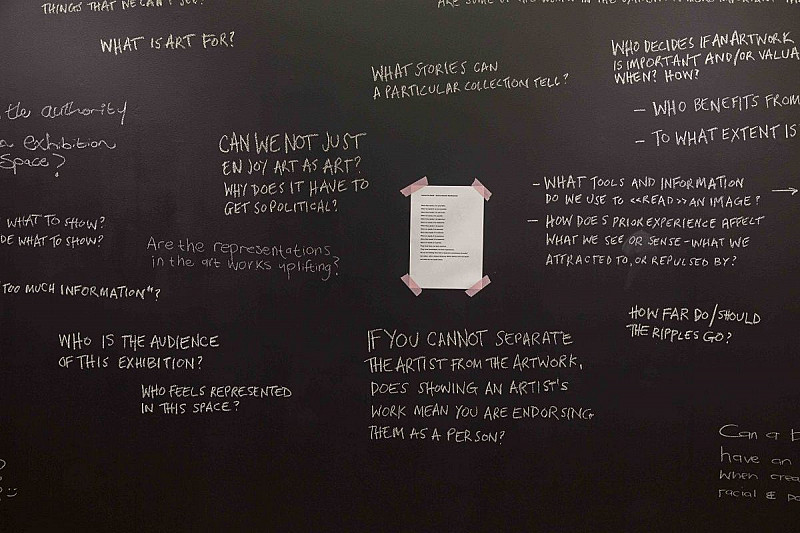 THINGS THAT WE CAN'T SEE?
ARE SOME OF THE
WHAT IS ART FOR?
WHAT STORIES CAN
A PARTICULAR COLLECTION TELL?
WHO DECIDES IF AN ARTWORK
IS IMPORTANT AND/OR VALUA
WHEN? HOW?
– WHO BENEFITS FROM
– TO WHAT EXTENT IS
the authority
a exhibition
Space?
CAN WE NOT JUST
ENJOY ART AS ART?
WHY DOES IT HAVE TO
GET SO POLITICAL?
– WHAT TOOLS AND INFORMATION
DO WE USE TO <<READ>> AN IMAGE? →
– HOW DOES PRIOR EXPERIENCE AFFECT
WHAT WE SEE OR SENSE – WHAT WE
ATTRACTED TO, OR REPULSED BY?
WHAT TO SHOW?
DE WHAT TO SHOW?
Are the representations
in the art works uplifting?
TOO MUCH INFORMATION"?
HOW FAR DO/SHOULD
THE RIPPLES GO?
WHO IS THE AUDIENCE
OF THIS EXHIBITION?
WHO FEELS REPRESENTED
IN THIS SPACE?
IF YOU CANNOT SEPARATE
THE ARTIST FROM THE ARTWORK,
DOES SHOWING AN ARTIST'S
WORK MEAN YOU ARE ENDORSING
THEM AS A PERSON?
Can a
have an
when crea
racial & po